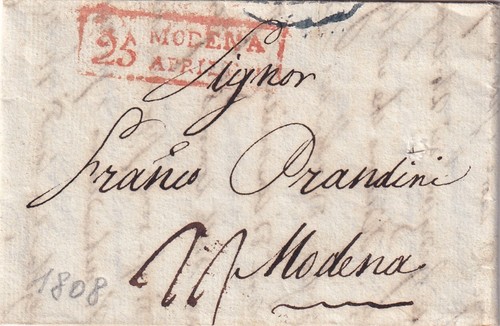 25 MODENA
APRILE
Signor
Franco Prandini
Modena
1808